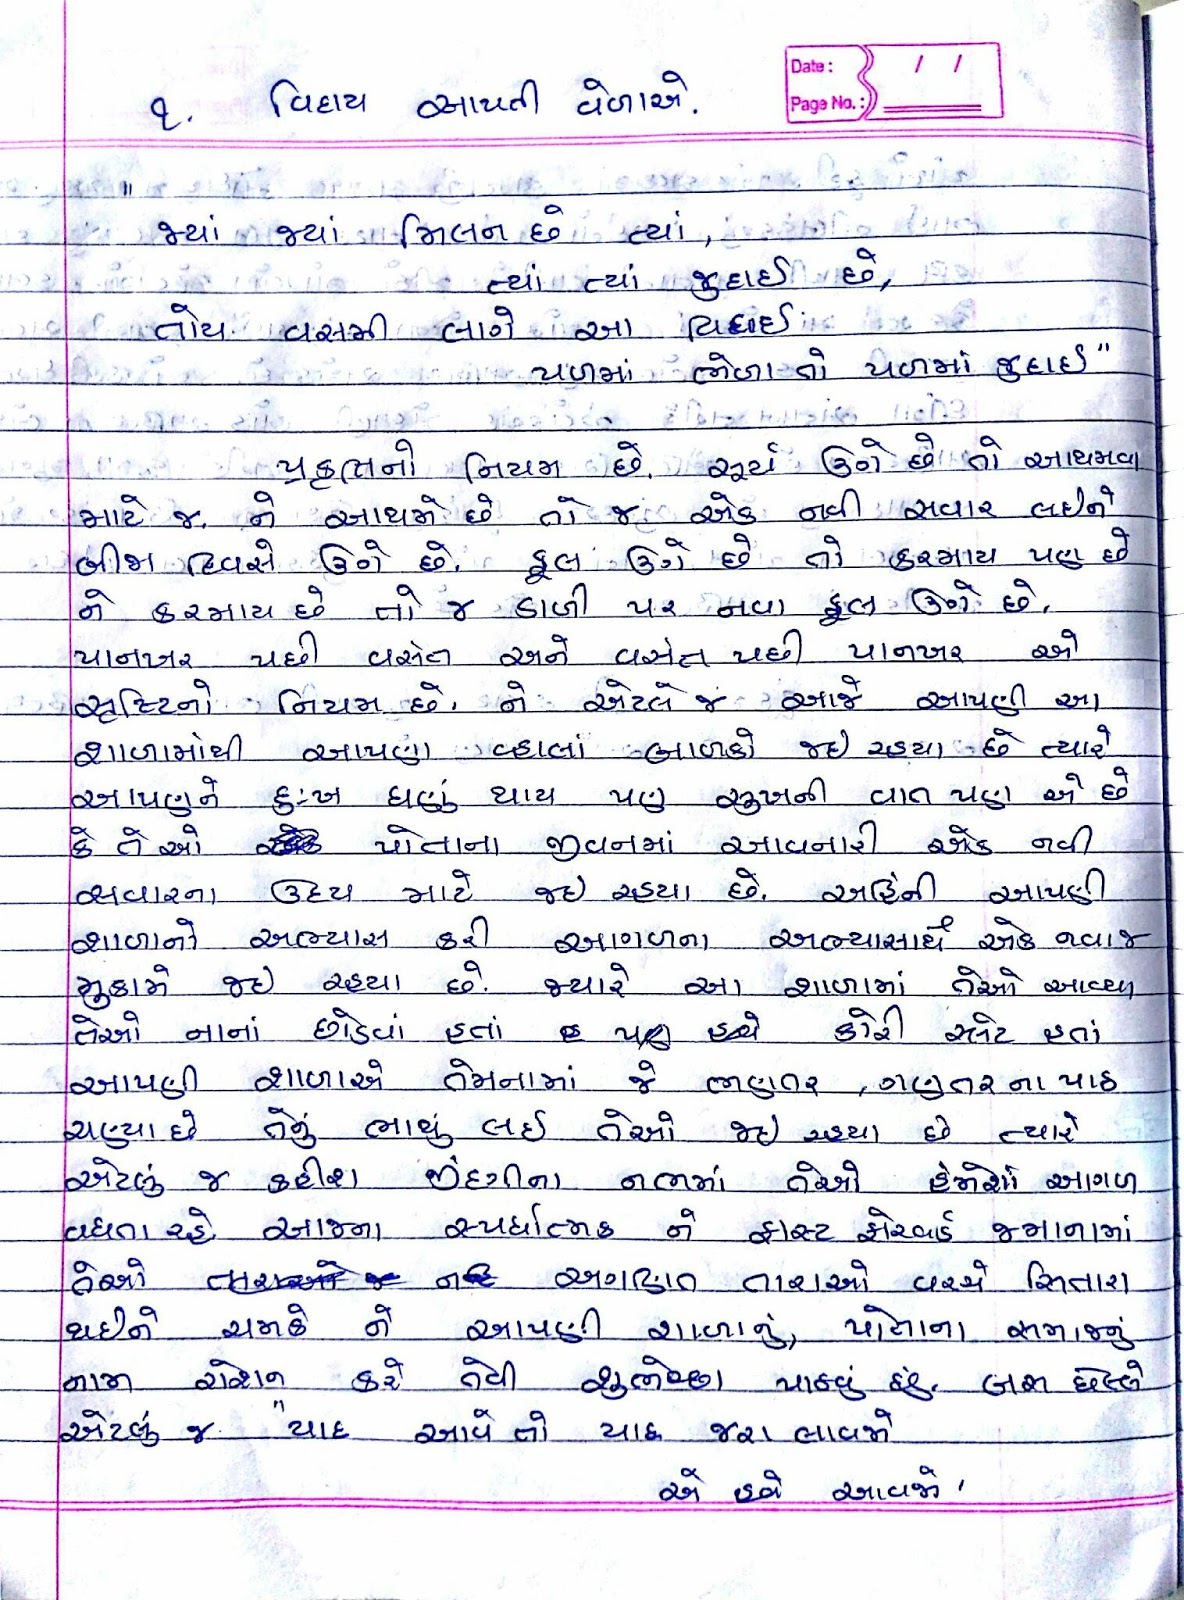 Date : / /
Page No. :
૧. વિદાય આપતી વેળાએ.
"
જ્યાં જ્યાં મિલન છે ત્યાં,
ત્યાં ત્યાં જુદાઈ છે,
તોય વસમી લાગે આ વિદાઈ
પળમાં ભેળા તો પળમાં જુદાઈ"
પ્રકૃતિનો નિયમ છે. સૂર્ય ઉગે છે તો આથમવા
માટે જ. ને આથમે છે તો જ એક નવી સવાર લઈને
બીજા દિવસે ઉગે છે. ફૂલ ઉગે છે તો કરમાય પણ છે
ને કરમાય છે તો જ ડાળી પર નવા ફૂલ ઉગે છે.
પાનખર પછી વસંત અને વસંત પછી પાનખર એ
સૃષ્ટિનો નિયમ છે. ને એટલે જ આજે આપણી આ
શાળામાંથી આપણા વ્હાલાં બાળકો જઈ રહયા છે ત્યારે
આપણને દુઃખ ઘણું થાય પણ સુખની વાત પણ એ છે
કે તેઓ પોતાના જીવનમાં આવનારી એક નવી
સવારના ઉદય માટે જઈ રહયા છે. અહિંની આપણી
શાળાનો અભ્યાસ કરી આગળના અભ્યાસાર્થે એક નવાજ
મુકામે જઈ રહયા છે. જ્યારે આ શાળામાં તેઓ આવ્યા
તેઓ નાનાં છોડવાં હતાં કોરી સ્લેટ હતાં
આપણી શાળાએ તેમનામાં જે ભણતર, ગણતરના પાઠ
ચણ્યા છે તેનું ભાથું લઈ તેઓ જઈ રહયા છે ત્યારે
એટલું જ કહીશ જીંદગીના નભમાં તેઓ હંમેશાં આગળ
વધતા રહે આજના સ્પર્ધાત્મક ને ફાસ્ટ ફોરવર્ડ જમાનામાં
તેઓ અગણિત તારાઓ વચ્ચે સિતારા
થઈને ચમકે ને આપણી શાળાનું, પોતાના સમાજનું
નામ રોશન કરે તેવી શુભેચ્છા પાઠવું છું. બસ છેલ્લે
એટલું જ "યાદ આવે તો યાદ જરા લાવજો
એ હવે આવજો'